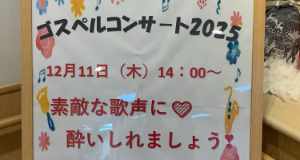 ゴスペルコンサート2025
12月11日（木）14：00～
素敵な歌声に♡
酔いしれましょう♥